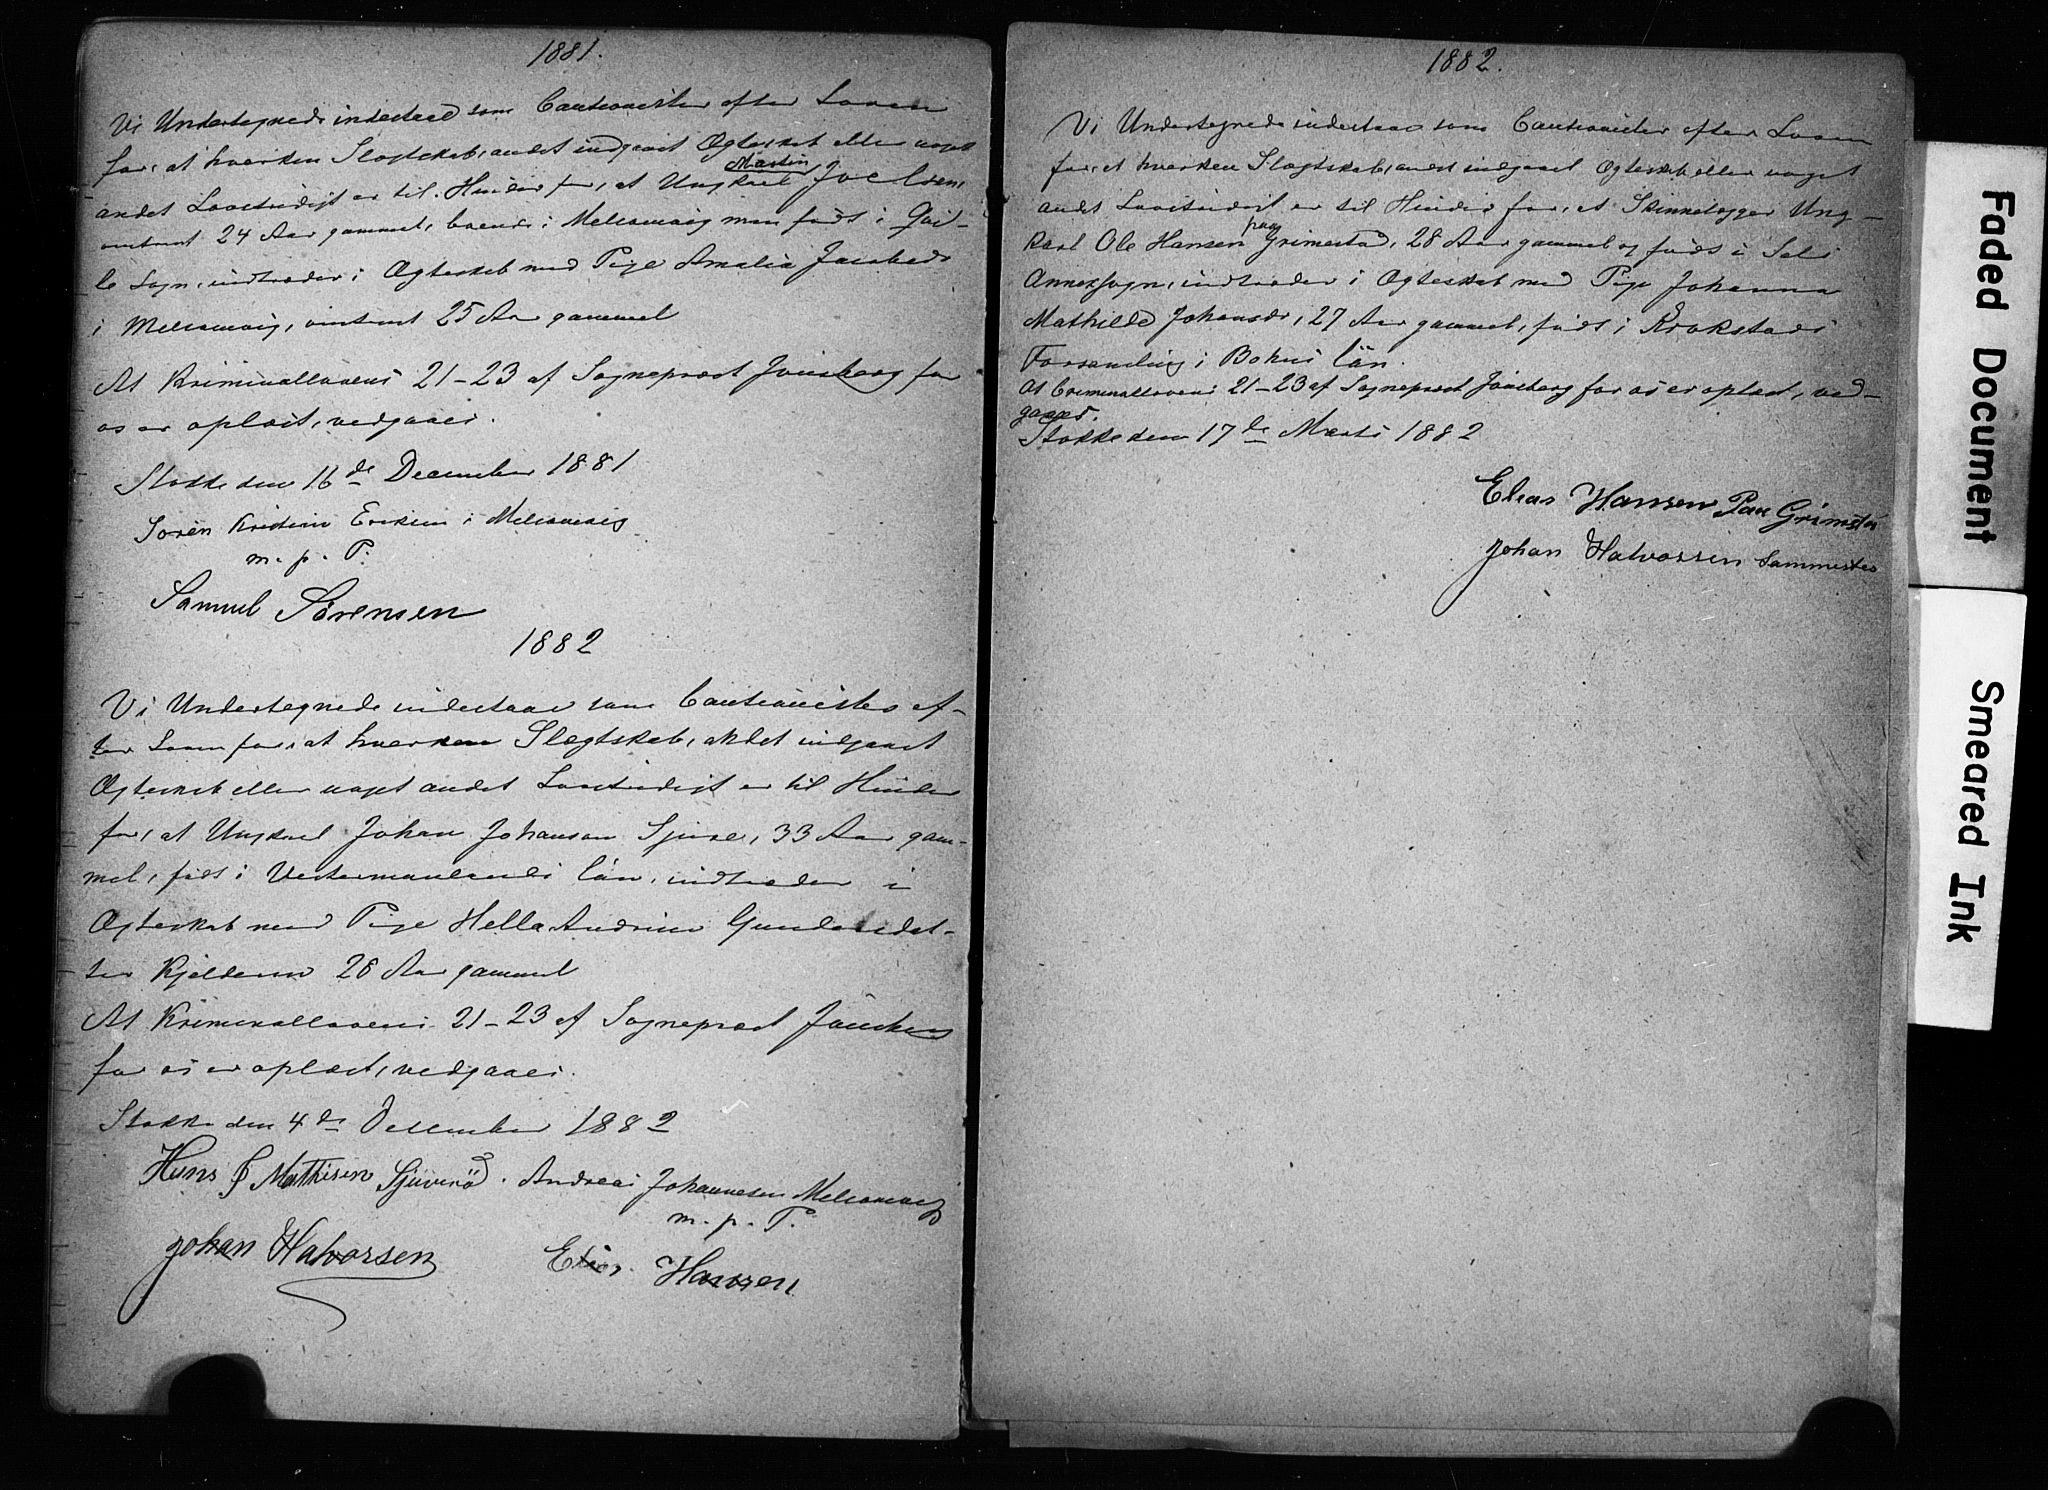 1881.
Vi Undertegnede indestaae som Cautionister efter Loven
for, at hverken Slægtskab, andet indgaaet Ægteskab eller noget
andet Lovstridigt er til Hinder for, at Ungkarl Martin Joelsen,
omtrent 24 Aar gammel, boende i Melsomvig men født i
Sogn, indtræder i Ægteskab med Pige Amalia Jacobsdr
i Melsomvig, omtrent 25 Aar gammel
At Kriminallovens 21-23 af Sognepræst Jönsberg for
os er oplæst, vedgaaes.
Stokke den 16de December 1881
Sören Kristian Eriksen i Melsomvig
m. p. P.
Samuel Sörensen
1882
Vi Undertegnede indestaae som Cautionister ef-
ter Loven for, at hverken Slægtskab, andet indgaaet
Ægteskab eller noget andet Lovstridigt er til Hinder
for, at Ungkarl Johan Johanson Sjure, 33 Aar gam-
mel, født i Vestermanlands län, indtræder i
Ægteskab med Pige Hella Andrine Gundersdat-
ter Kjelderen 28 Aar gammel
At Kriminallovens 21-23 af Sognepræst Jönsberg
for os er oplæst, vedgaaes.
Stokke den 4de December 1882
Hans J Mathisen Sjuverød. Andreas Johannesen Melsomvig
m. p. P.
Johan Halvorsen Elias Hansen
1882.
Vi Undertegnede indestaae som Cautionister efter Loven
for, at hverken Slægtskab, andet indgaaet Ægteskab eller noget
andet Lovstridigt er til Hinder for, at Skindlægger Ung-
karl Ole Hansen paa Grimestad, 28 Aar gammel og født i
Annexsogn, indtræder i Ægteskab med Pige Johanna
Mathilde Johansdr, 27 Aar gammel, født i Krokstads
Forsamling i Bohus län.
At Criminallovens 21-23 af Sognepræst Jönsberg for os er oplæst, ved-
gaaes.
Stokke den 17de Marts 1882
Elias Hansen Paa Grimsta
Johan Halvorsen Sammested
Faded Document
Smeared Ink